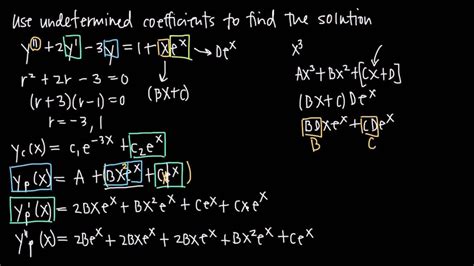 Use undetermined coefficients to find the solution
y'' + 2y' - 3y = 1 + xe^x → De^x
(Bx+C)
r² + 2r - 3 = 0
(r+3)(r-1) = 0
r = -3, 1
y_c(x) = c₁e^-3x + c₂e^x
y_p(x) = A + Bx²e^x + Ce^x)
y_p'(x) = 2Bxe^x + Bx²e^x + Ce^x + Cxe^x
y_p''(x) = 2Be^x + 2Bxe^x + 2Bxe^x + Bx²e^x + Ce^x
x³
Ax³ + Bx² + [Cx + D]
(Bx+C) De^x
BDxe^x + CDe^x
B C